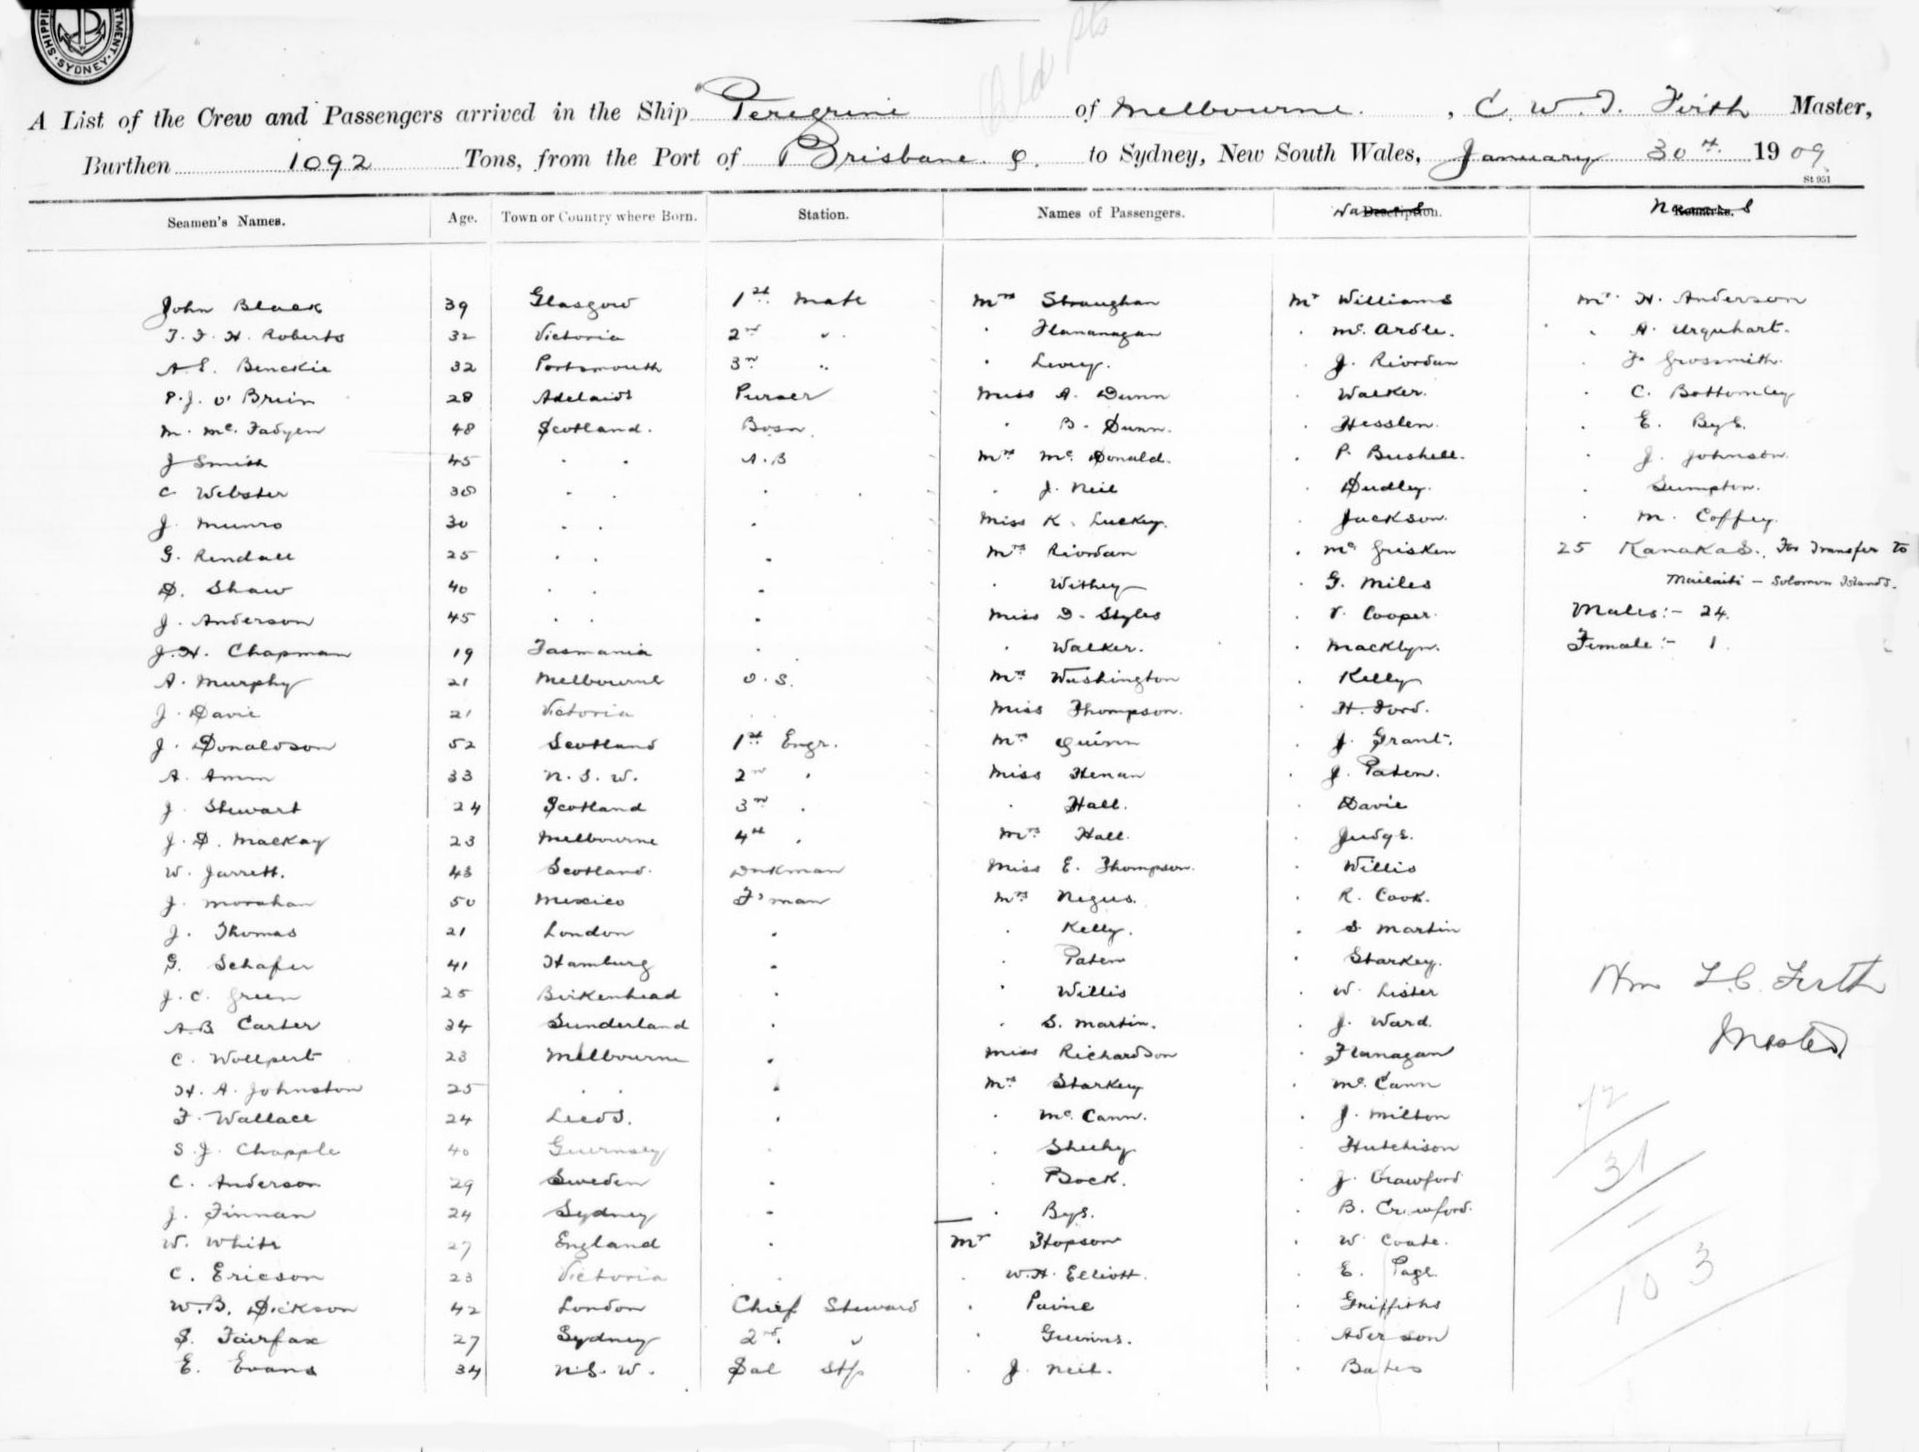 SHIPPING DEPARTMENT. SYDNEY.
Old Pts
A List of the Crew and Passengers arrived in the Ship Peregrine of Melbourne. , C. W. T. Firth Master,
Burthen 1092 Tons, from the Port of Brisbane Q. to Sydney, New South Wales, January 30th 1909
St 951
Seamen's Names. Age. Town or Country where Born. Station. Names of Passengers. Names Names
John Black 39 Glasgow 1st Mate Mrs Straughan Mr Williams Mr H. Anderson
T. F. H. Roberts 32 Victoria 2nd " . Flannanagan . Mc Ardle. . A. Urquhart.
A. E. Benckie 32 Portsmouth 3rd " . Levey. . J. Riordan . F. Grossmith.
P. J. O'Brien 28 Adelaide Purser Miss A. Dunn . Walker. . C. Bottomley
M. Mc. Fadyen 48 Scotland. Bosn. . B. Dunn. . Hesslen. . E. Bye.
J Smith 45 . . A. B Mrs Mc Donald. . P. Bushell. . J. Johnson.
C Webster 38 . . . . J. Neil . Dudley. . Sumpton.
J. Munro 30 . . . Miss K. Luckey. . Jackson. . M. Coffey.
G. Rendall 25 . . . Mrs Riordan . Mc Grisken 25 Kanakas. For Transfer to
D. Shaw 40 . . . . Withey . G. Miles Mailaiti - Solomon Islands.
J. Anderson 45 . . . Miss D. Styles . V. Cooper. Males:- 24.
J. H. Chapman 19 Tasmania . . Walker. . Macklyn. Female:- 1.
A. Murphy 21 Melbourne O. S. Mrs Washington . Kelly
J. Davie 21 Victoria . Miss Thompson. . H. Ford.
J. Donaldson 52 Scotland 1st Engr. Mrs Quinn . J. Grant.
A. Amm 33 N. S. W. 2nd . Miss Henan . J. Paten.
J. Stewart 24 Scotland 3rd . . Hall. . Davie
J. D. Mackay 23 Melbourne 4th . Mrs Hall. . Judge.
W. Jarrett. 43 Scotland. Dnkman Miss E. Thompson. . Willis
J. Morahan 50 Mexico F'man Mrs Negus. . R. Cook.
J. Thomas 21 London . . Kelly. . S. Martin
G. Schafer 41 Hamburg . . Paten . Starkey.
J. C. Green 25 Birkenhead . . Willis . W. Lister
A. B Carter 34 Sunderland . . S. Martin. . J. Ward.
C. Wollpert 23 Melbourne . Miss Richardson . Flanagan
H. A. Johnston 25 . . . Mrs Starkey . Mc. Cann
F. Wallace 24 Leeds. . . Mc. Cann. . J. Milton
S. J. Chapple 40 Guernsey . . Sheehy . Hutchison
C. Anderson 29 Sweden . . Bock. . J. Crawford
J. Finnan 24 Sydney . . Bye. . B. Crawford.
W. White 27 England . Mr Hopson . W. Coate.
C. Ericson 23 Victoria . . W. H. Elliott. . E. Page.
W. B. Dickson 42 London Chief Steward . Paine . Griffiths
S. Fairfax 27 Sydney 2nd. " . Guinns. . Aderson
E. Evans 34 N. S. W. Sal Stp . J. Neil. . Bates
Firth
Master
72
31
103